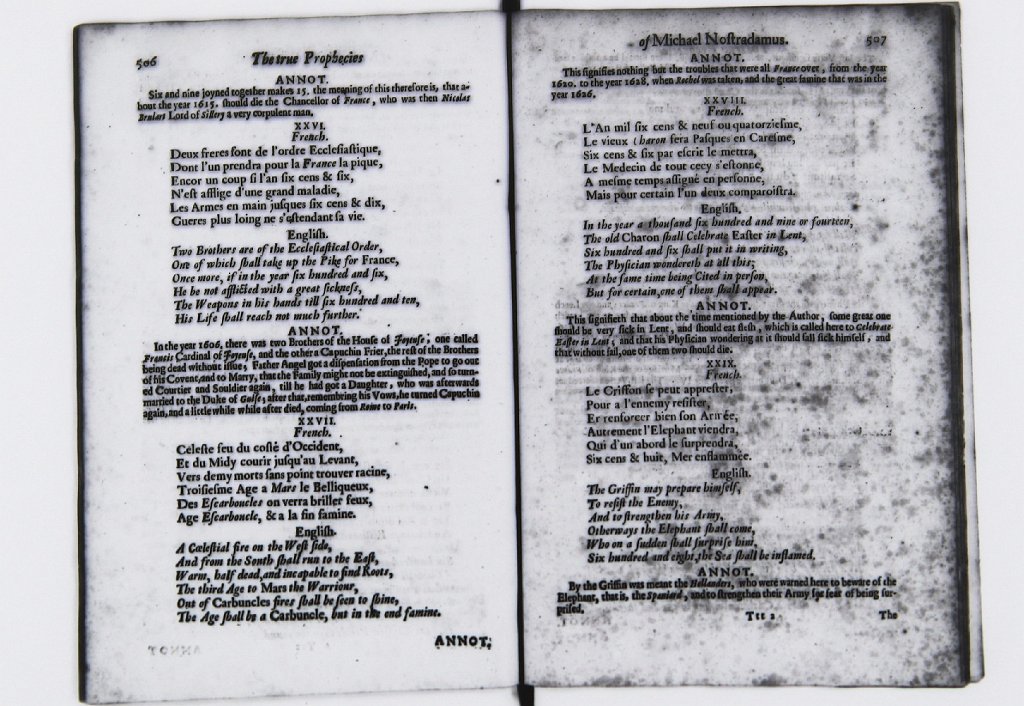 506
The true Prophecies
ANNOT.
Six and nine joyned together makes 15. the meaning of this therefore is, that a-
bout the year 1615. ſhould die the Chancellor of France, who was then Nicolas
Brulart Lord of Sillery a very corpulent man.
XXVI.
French.
Deux freres ſont de l'ordre Eccleſiaſtique,
Dont l'un prendra pour la France la pique,
Encor un coup ſi l'an ſix cens & ſix,
N'eſt afflige d'une grand maladie,
Les Armes en main juſques ſix cens & dix,
Gueres plus loing ne s'eſtendant ſa vie.
Engliſh.
Two Brothers are of the Eccleſiaſtical Order,
One of which ſhall take up the Pike for France,
Once more, if in the year ſix hundred and ſix,
He be not afflicted with a great ſickneſs,
The Weapons in his hands till ſix hundred and ten,
His Life ſhall reach not much further.
ANNOT.
In the year 1606. there was two Brothers of the Houſe of Joyeuſe; one called
Francis Cardinal of Joyeuſe, and the other a Capuchin Frier, the reſt of the Brothers
being dead without iſſue; Father Angel got a diſpenſation from the Pope to go out
of his Covent, and to Marry, that the Family might not be extinguiſhed, and ſo turn-
ed Courtier and Souldier again, till he had got a Daughter, who was afterwards
married to the Duke of Guiſe; after that, remembring his Vows, he turned Capuchin
again, and a little while while after died, coming from Rome to Paris.
XXVII.
French.
Celeſte feu du coſté d'Occident,
Et du Midy courir juſqu'au Levant,
Vers demy morts ſans point trouver racine,
Troiſieſme Age a Mars le Belliqueux,
Des Eſcarboucles on verra briller feux,
Age Eſcarboucle, & a la fin famine.
Engliſh.
A Cœleſtial fire on the Weſt ſide,
And from the South ſhall run to the Eaſt,
Warm, half dead, and incapable to find Roots,
The third Age to Mars the Warriour,
Out of Carbuncles fires ſhall be ſeen to ſhine,
The Age ſhall be a Carbuncle, but in the end famine.
ANNOT.
of Michael Noſtradamus.
507
ANNOT.
This ſignifies nothing but the troubles that were all France over, from the year
1620. to the year 1628. when Rochel was taken, and the great famine that was in the
year 1626.
XXVIII.
French.
L'An mil ſix cens & neuf ou quatorzieſme,
Le vieux Charon fera Paſques en Careſme,
Six cens & ſix par eſcrit le mettra,
Le Medecin de tout cecy s'eſtonne,
A meſme temps aſſigné en perſonne,
Mais pour certain l'un deux comparoiſtra.
Engliſh.
In the year a thouſand ſix hundred and nine or fourteen,
The old Charon ſhall Celebrate Eaſter in Lent,
Six hundred and ſix ſhall put it in writing,
The Phyſician wondereth at all this;
At the ſame time being Cited in perſon,
But for certain, one of them ſhall appear.
ANNOT.
This ſignifieth that about the time mentioned by the Author, ſome great one
ſhould be very ſick in Lent, and ſhould eat fleſh, which is called here to Celebrate
Eaſter in Lent; and that his Phyſician wondering at it ſhould fall ſick himſelf, and
that without fail, one of them two ſhould die.
XXIX.
French.
Le Griffon ſe peut appreſter,
Pour a l'ennemy reſiſter,
Er renforcer bien ſon Armée,
Autrement l'Elephant viendra,
Qui d'un abord le ſurprendra,
Six cens & huit, Mer enflammée.
Engliſh.
The Griffin may prepare himſelf,
To reſiſt the Enemy,
And to ſtrengthen his Army,
Otherways the Elephant ſhall come,
Who on a ſudden ſhall ſurpriſe him,
Six hundred and eight, the Sea ſhall be inflamed.
ANNOT.
By the Griffin was meant the Hollanders, who were warned here to beware of the
Elephant, that is, the Spaniard, and to ſtrengthen their Army for fear of being ſur-
priſed.
Ttt 2
The